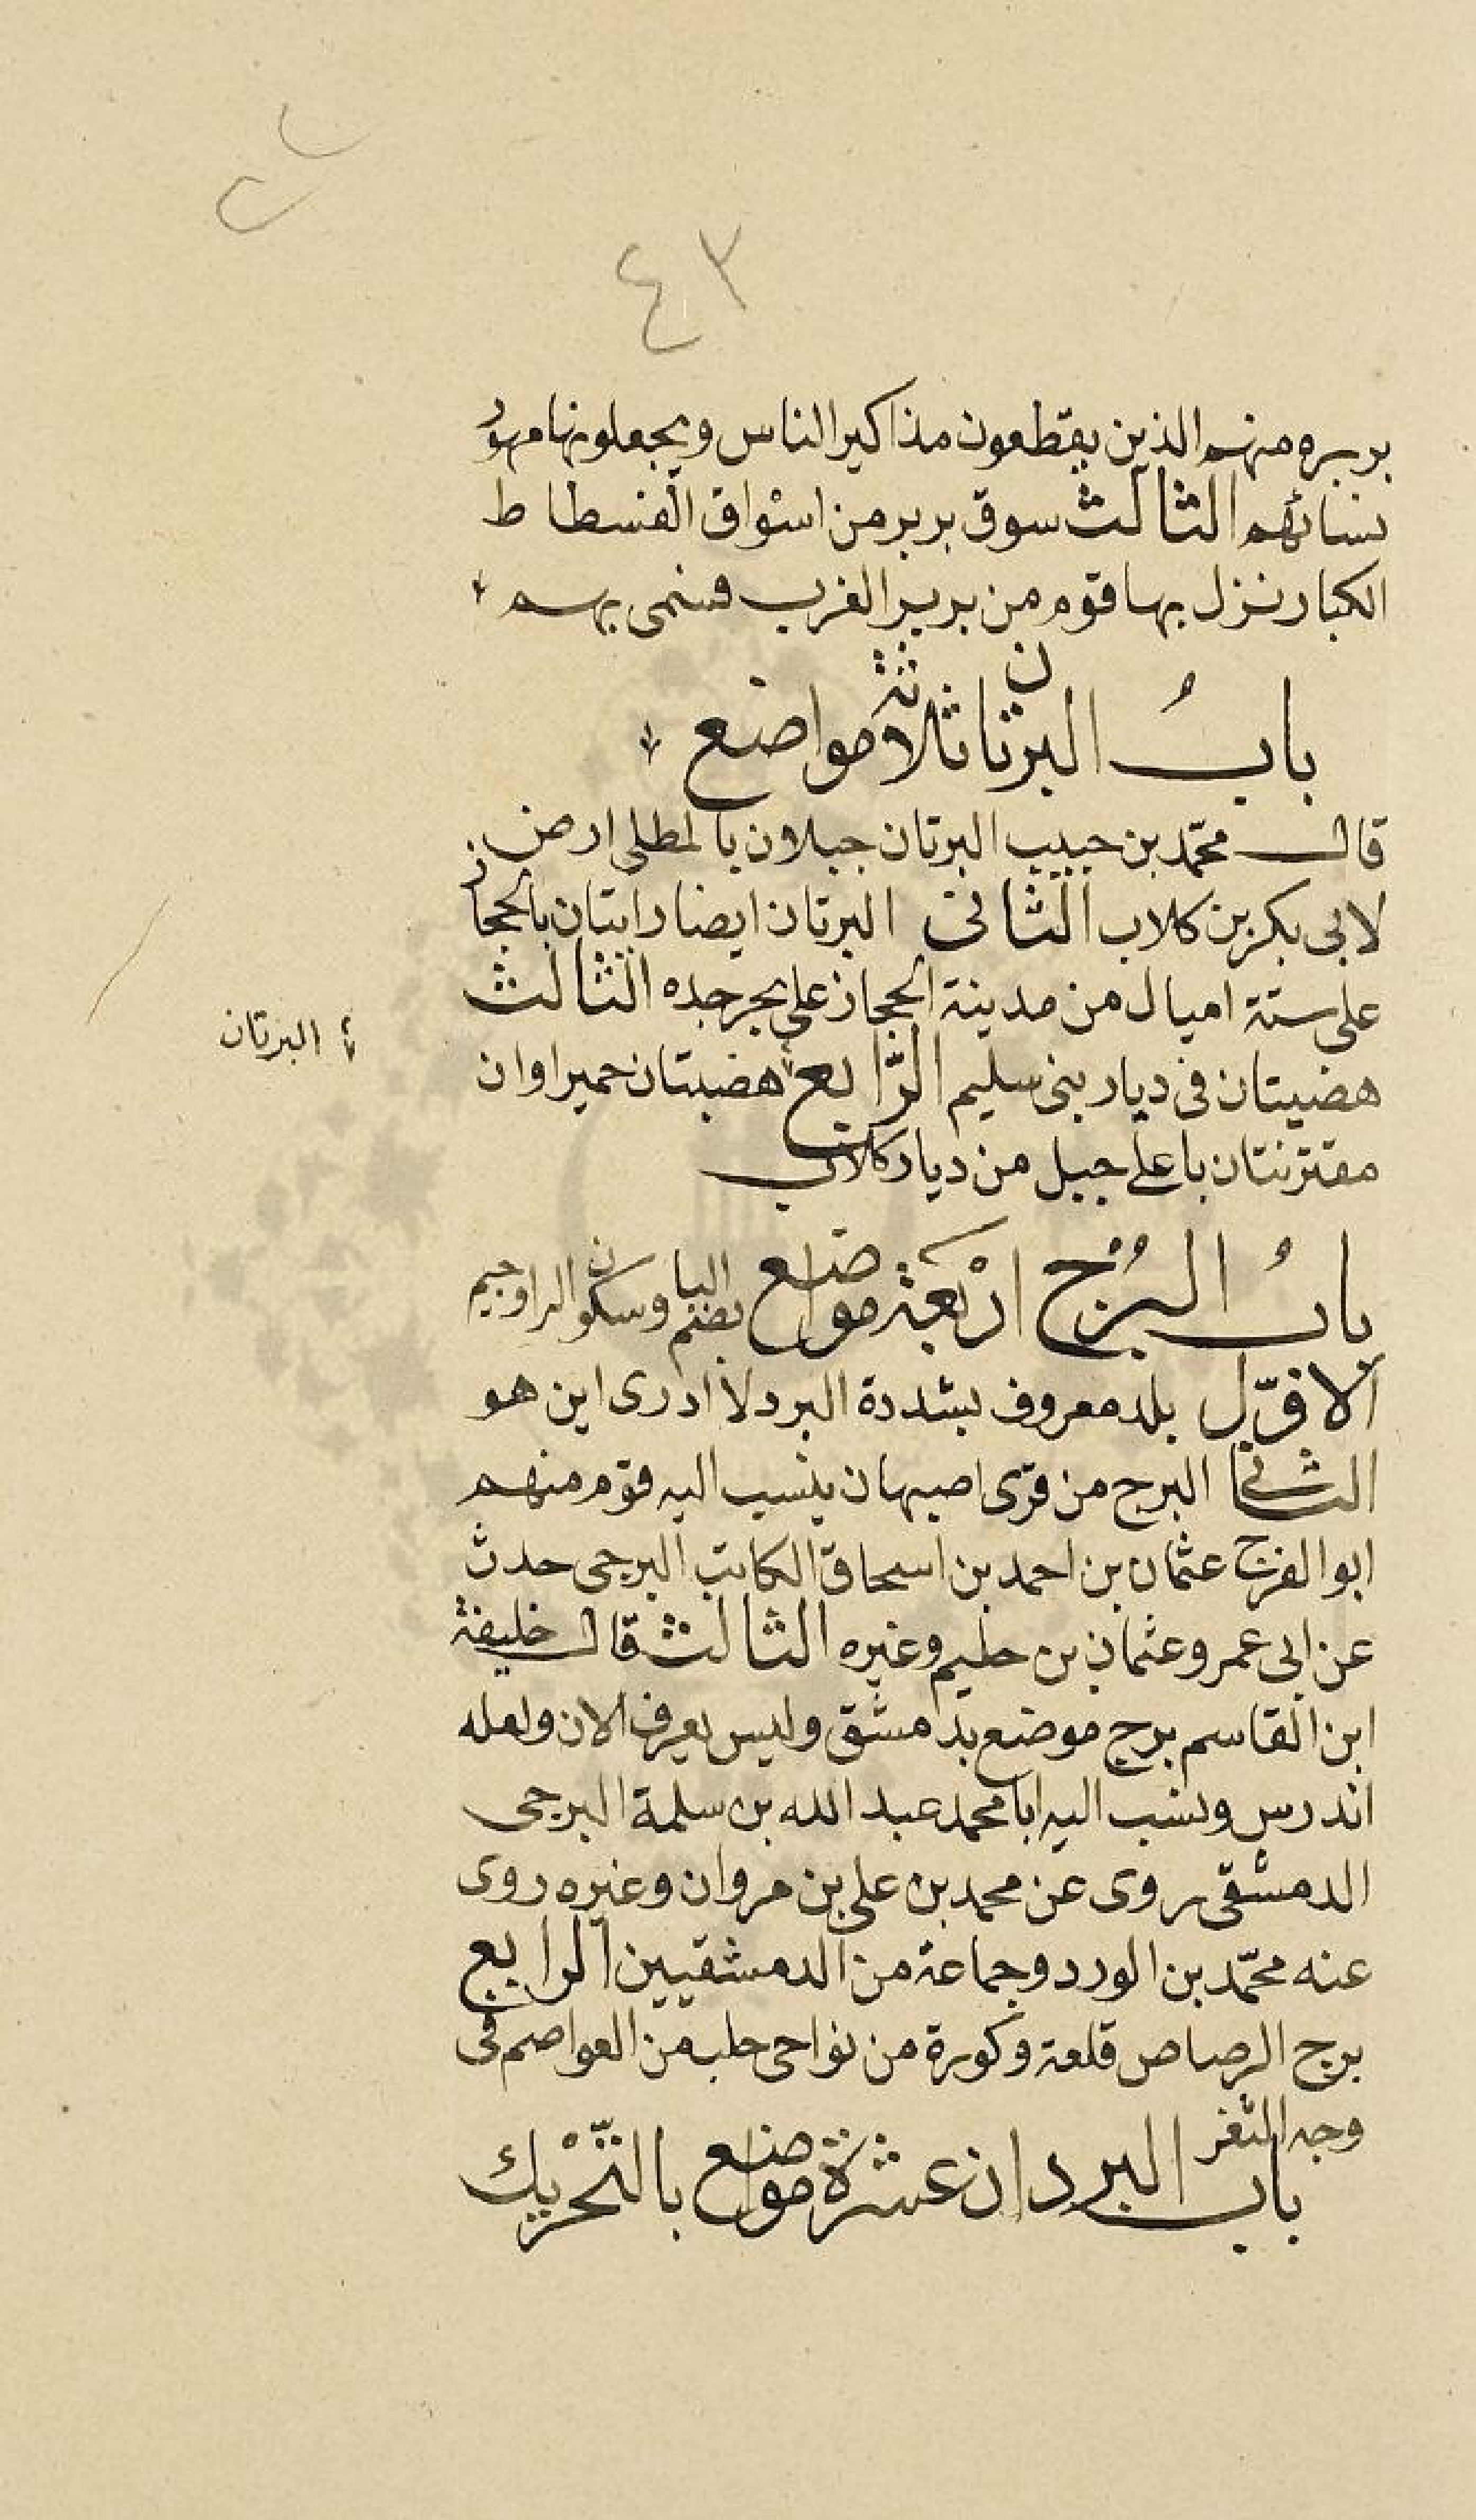 ٤٣
بربره منهم الذين يقطعون مذاكير الناس ويجعلونها مهور
نسائهم الثالث سوق بربر من اسواق الفسطاط
الكبار نزل بها قوم من بربر الغرب فسمى بهم
باب البرتان ثلاثة مواضع
قال محمّد بن حبيب البرتان جبلان بالمطلى ارض
لابى بكر بن كلاب الثانى البرتان ايضا رابتان بالحجاز
على ستة اميال من مدينة الحجاز على بحر جده الثالث
هضبتان فى ديار بنى سليم الرّابع هضبتان حميراوان
مقترنتان باعلى جبل من ديار كلاب
البرتان
بابُ البُرْج ارْبعة مواضع بضم البا وسكون الرا وجيم
الاوّل بلد معروف بشددة البرد لا ادرى اين هو
الثانى البرج من قرى اصبهان ينسب اليه قوم منهم
ابو الفرج عثمان بن احمد بن اسحاق الكاتب البرجى حدث
عن ابى عمرو عثمان بن حليم وغيره الثالث قال خليفة
ابن القاسم برج موضع بدامشق وليس يعرف الان ولعله
اندرس ونسب اليه ابا محمد عبد الله بن سلمة البرجى
الدمشقى روى عن محمد بن على بن مروان وغيره روى
عنه محمّد بن الورد وجماعة من الدمشقيين الرابع
برج الرصاص قلعة وكورة من نواحى حلب من العواصم فى
وجه الثغر
باب البردان عشرة مواضع بالتّحْريك